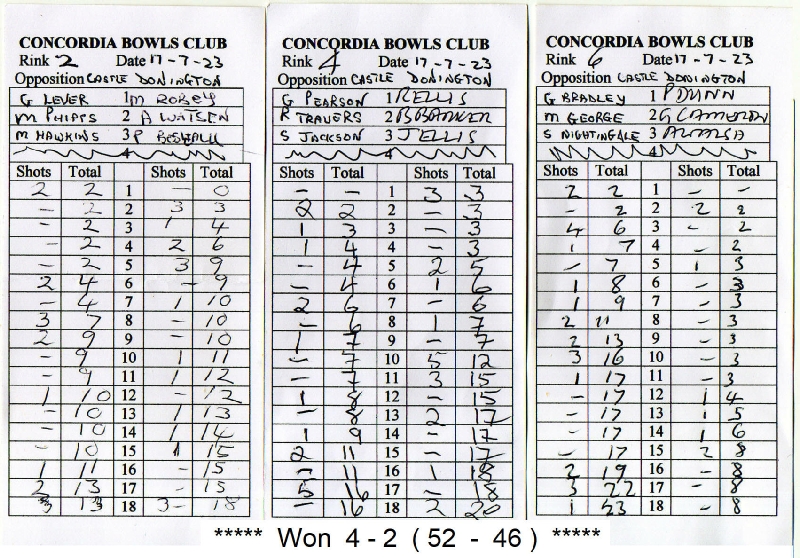 CONCORDIA BOWLS CLUB
Rink 2 Date 17-7-23
Opposition CASTLE DONINGTON
G LEVER 1 M ROBEY
M PHIPPS 2 A WATSEN
M HAWKINS 3 P
4
Shots Total Shots Total
2 2 1 - 0
- 2 2 3 3
- 2 3 1 4
- 2 4 2 6
- 2 5 3 9
2 4 6 - 9
- 4 7 1 10
3 7 8 - 10
2 9 9 - 10
- 9 10 1 11
- 9 11 1 12
1 10 12 - 12
- 10 13 1 13
- 10 14 1 14
- 10 15 1 15
1 11 16 - 15
2 13 17 - 15
13 18 3 - 18
CONCORDIA BOWLS CLUB
Rink 4 Date 17-7-23
Opposition CASTLE DONINGTON
G PEARSON 1 R ELLIS
R TRAVERS 2 B BANNER
S JACKSON 3 J ELLIS
4
Shots Total Shots Total
- - 1 3 3
2 2 2 - 3
1 3 3 - 3
1 4 4 - 3
- 4 5 2 5
- 4 6 1 6
2 6 7 - 6
- 6 8 1 7
1 7 9 - 7
- 7 10 5 12
- 7 11 3 15
1 8 12 - 15
- 8 13 2 17
1 9 14 - 17
2 11 15 - 17
- 11 16 1 18
5 16 17 - 18
- 16 18 2 20
CONCORDIA BOWLS CLUB
Rink 6 Date 17-7-23
Opposition CASTLE DONINGTON
G BRADLEY 1 P DUNN
M GEORGE 2 G CAMERON
S NIGHTINGALE 3
4
Shots Total Shots Total
2 2 1 - -
- 2 2 2 2
4 6 3 - 2
1 7 4 - 2
- 7 5 1 3
1 8 6 - 3
1 9 7 - 3
2 11 8 - 3
2 13 9 - 3
3 16 10 - 3
1 17 11 - 3
- 17 12 1 4
- 17 13 1 5
- 17 14 1 6
- 17 15 2 8
2 19 16 - 8
3 22 17 - 8
1 23 18 - 8
***** Won 4 - 2 ( 52 - 46 ) *****